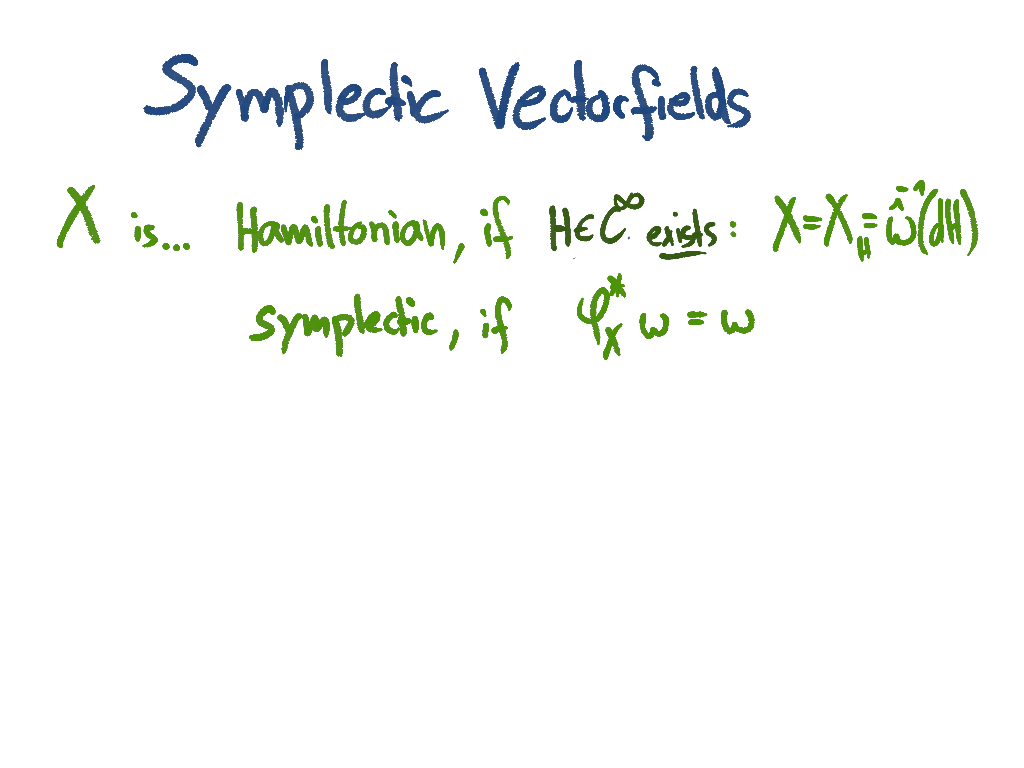 Symplectic Vectorfields
X is... Hamiltonian, if H∈C^∞ exists: X=X_H=ω̂^-1(dH)
symplectic, if φ_X^* ω = ω